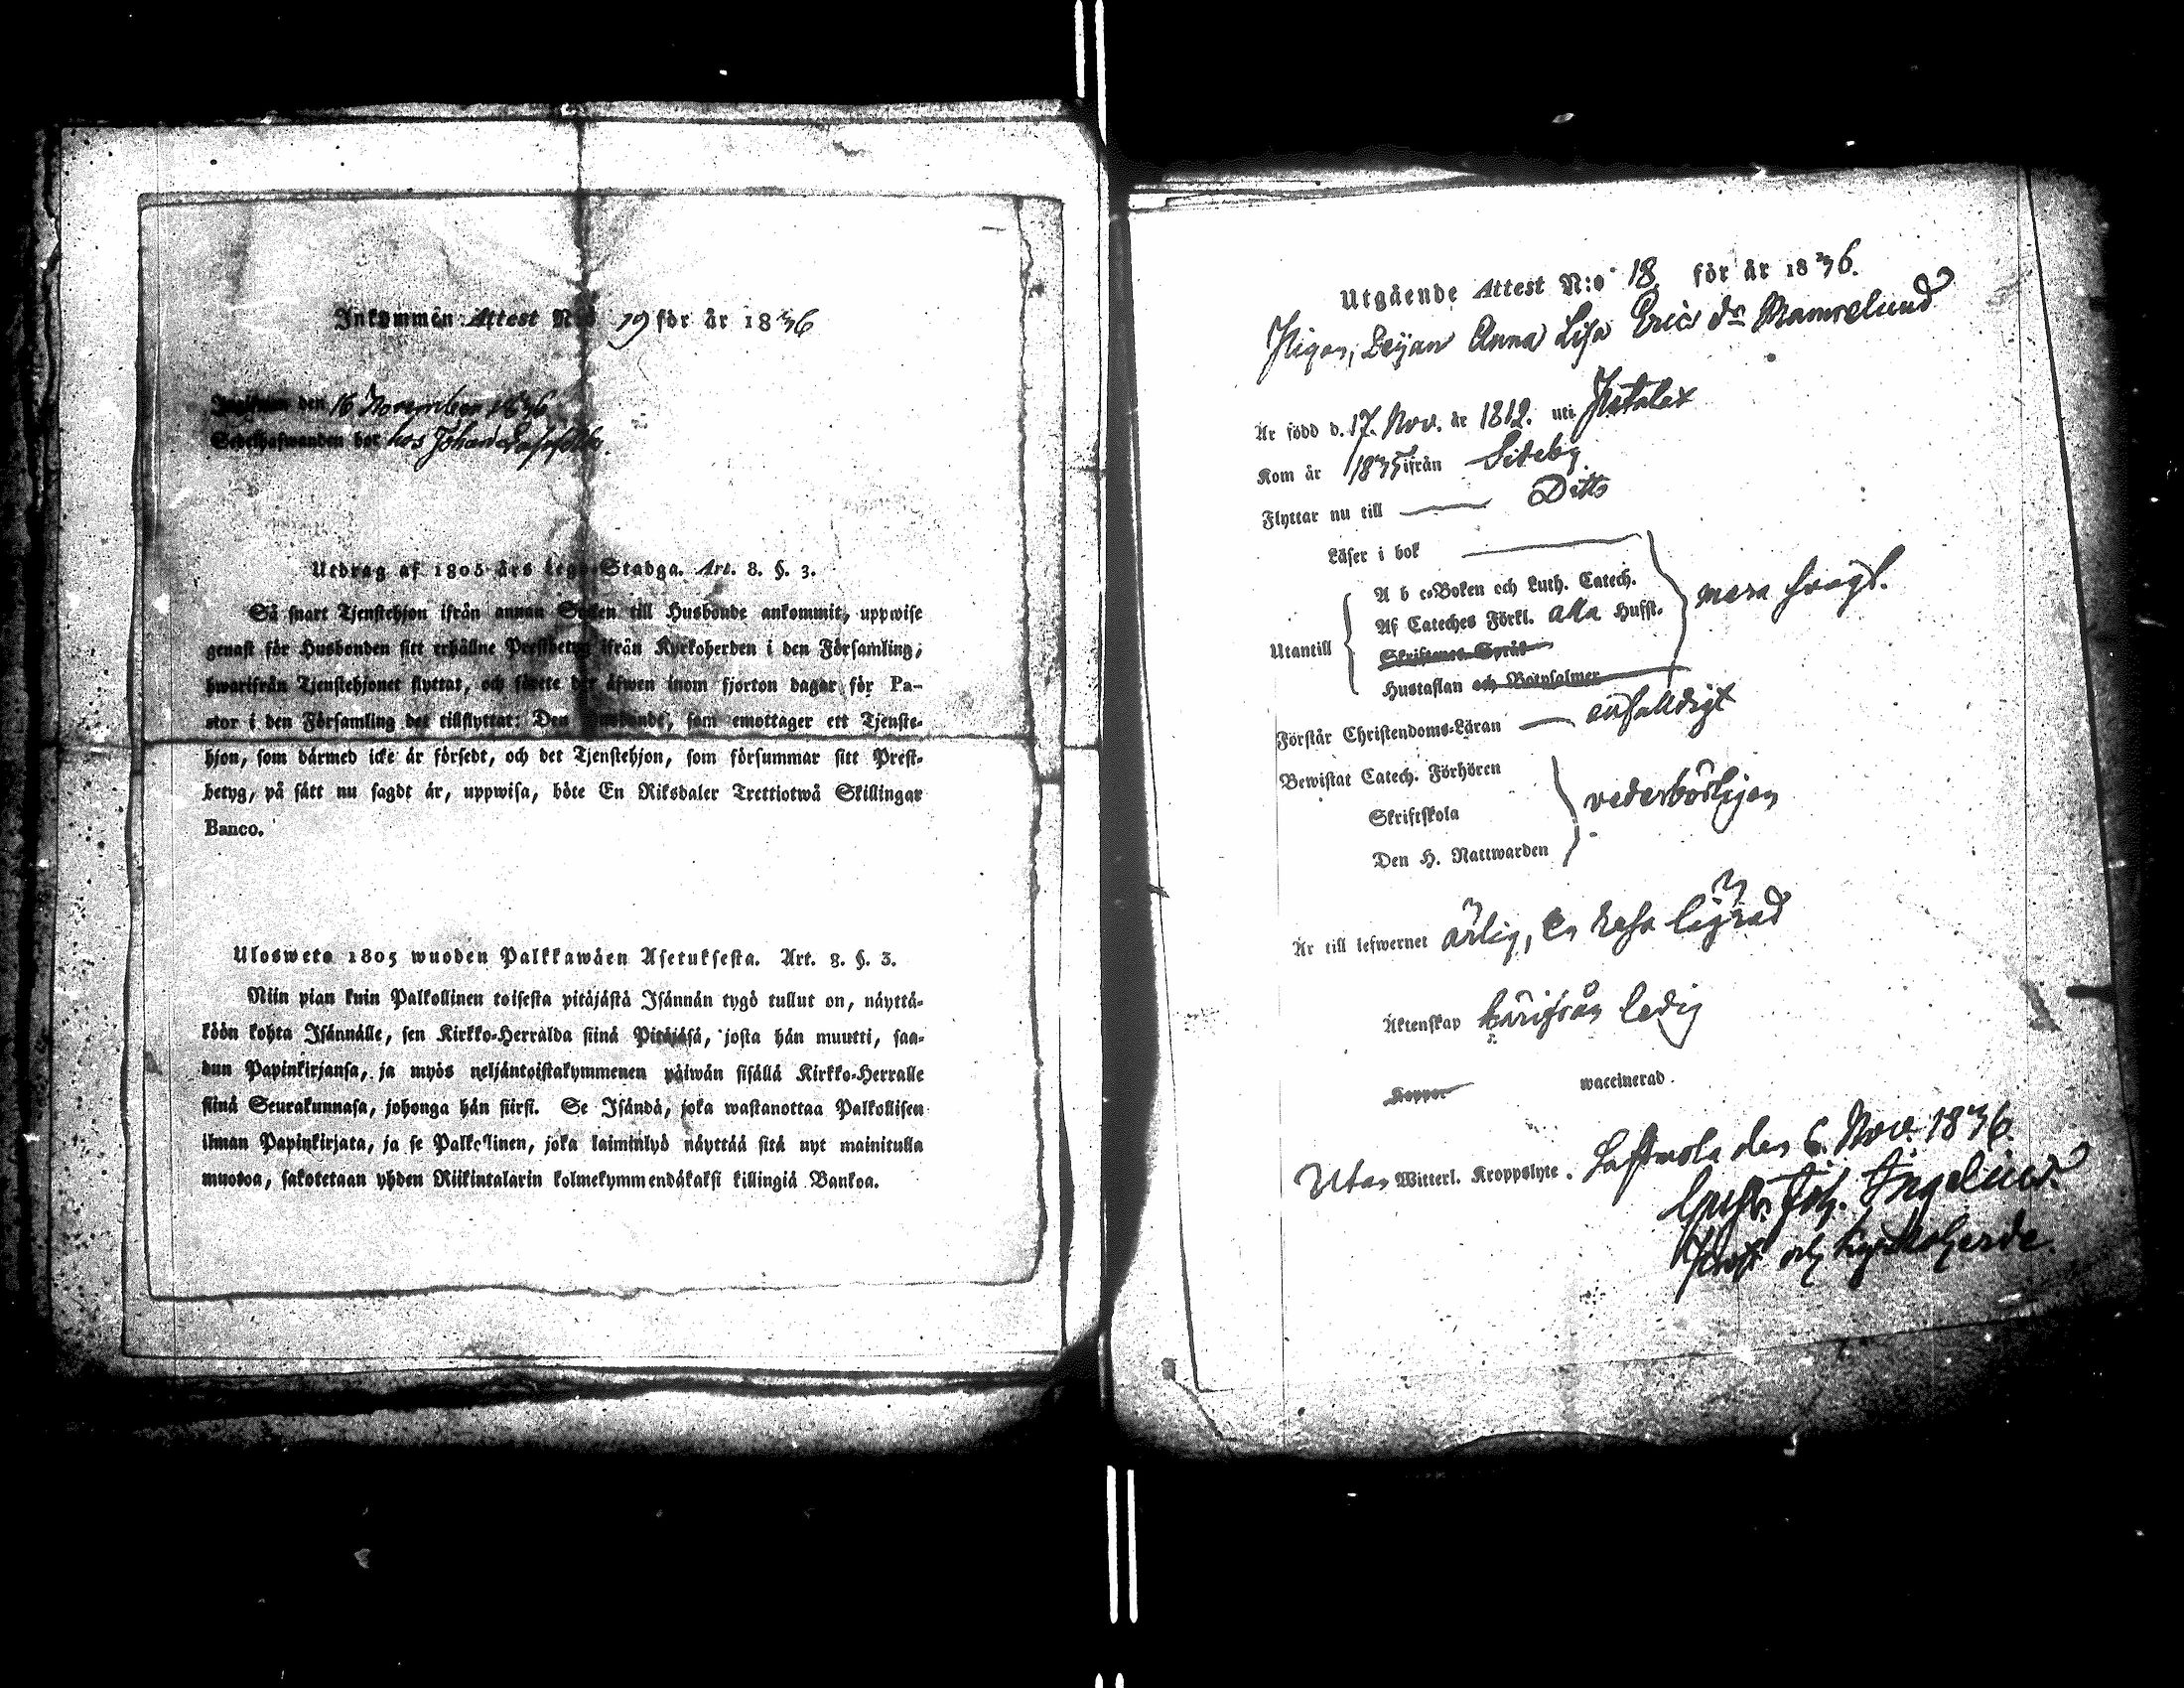 Inkommen Attest N:o 19 för år 1836
Inskrifwen den 16 November 1836
Sedelhafwanden bor hos Johan
Utdrag af 1805 års Lego-Stadga. Art. 8. §. 3.
Så snart Tjenstehjon ifrån annan Socken till Husbonde ankommit, uppwise
genast för Husbonden sitt erhållne Prestbetyg ifrån Kyrkoherden i den Församling,
hwarifrån Tjenstehjonet flyttat, och förete det äfwen inom fjorton dagar för Pa-
stor i den Församling det tillflyttat: Den Husbonde, som emottager ett Tjenste-
hjon, som därmed icke är försedt, och det Tjenstehjon, som försummar sitt Prest-
betyg, på sätt nu sagdt är, uppwisa, böte En Riksdaler Trettiotwå Skillingar
Banco.
Ulosweto 1805 wuoden Palkkawäen Asetuksesta. Art. 8. §. 3.
Niin pian kuin Palkollinen toisesta pitäjästä Isännän tygö tullut on, näyttä-
köön kohta Isännälle, sen Kirkko-Herralda siinä Pitäjäsä, josta hän muutti, saa-
dun Papinkirjansa, ja myös neljäntoistakymmenen päiwän sisällä Kirkko-Herralle
siinä Seurakunnasa, johonga hän siirsi. Se Isändä, joka wastanottaa Palkollisen
ilman Papinkirjata, ja se Palkollinen, joka laiminlyö näyttää sitä nyt mainitulla
muotoa, sakotetaan yhden Riikintalarin kolmekymmendäkaksi killingiä Bankoa.
Utgående Attest N:o 18 för år 1836.
Pigan, Anna Lisa Erics dr Ramselund
Är född d. 17. Nov. år 1812. uti
Kom år 1835 ifrån Sideby
Flyttar nu till Ditto
Läser i bok
A b c-Boken och Luth. Catech.
Af Cateches Förkl. alla Hufst. mera svagt.
Utantill
Skriftenes Språk
Hustaflan och Botpsalmer
Förstår Christendoms-Läran enfalldigt
Bewistat Catech. Förhören
Skriftskola vederbörligen
Den H. Nattwarden
Är till lefwernet ärlig, en resa lägrad
Äktenskap härifrån ledig
Koppor waccinerad.
Utan Witterl. Kroppslyte. den 6. Nov. 1836.
Joh. Ingelius.
och Kyrkoherde.